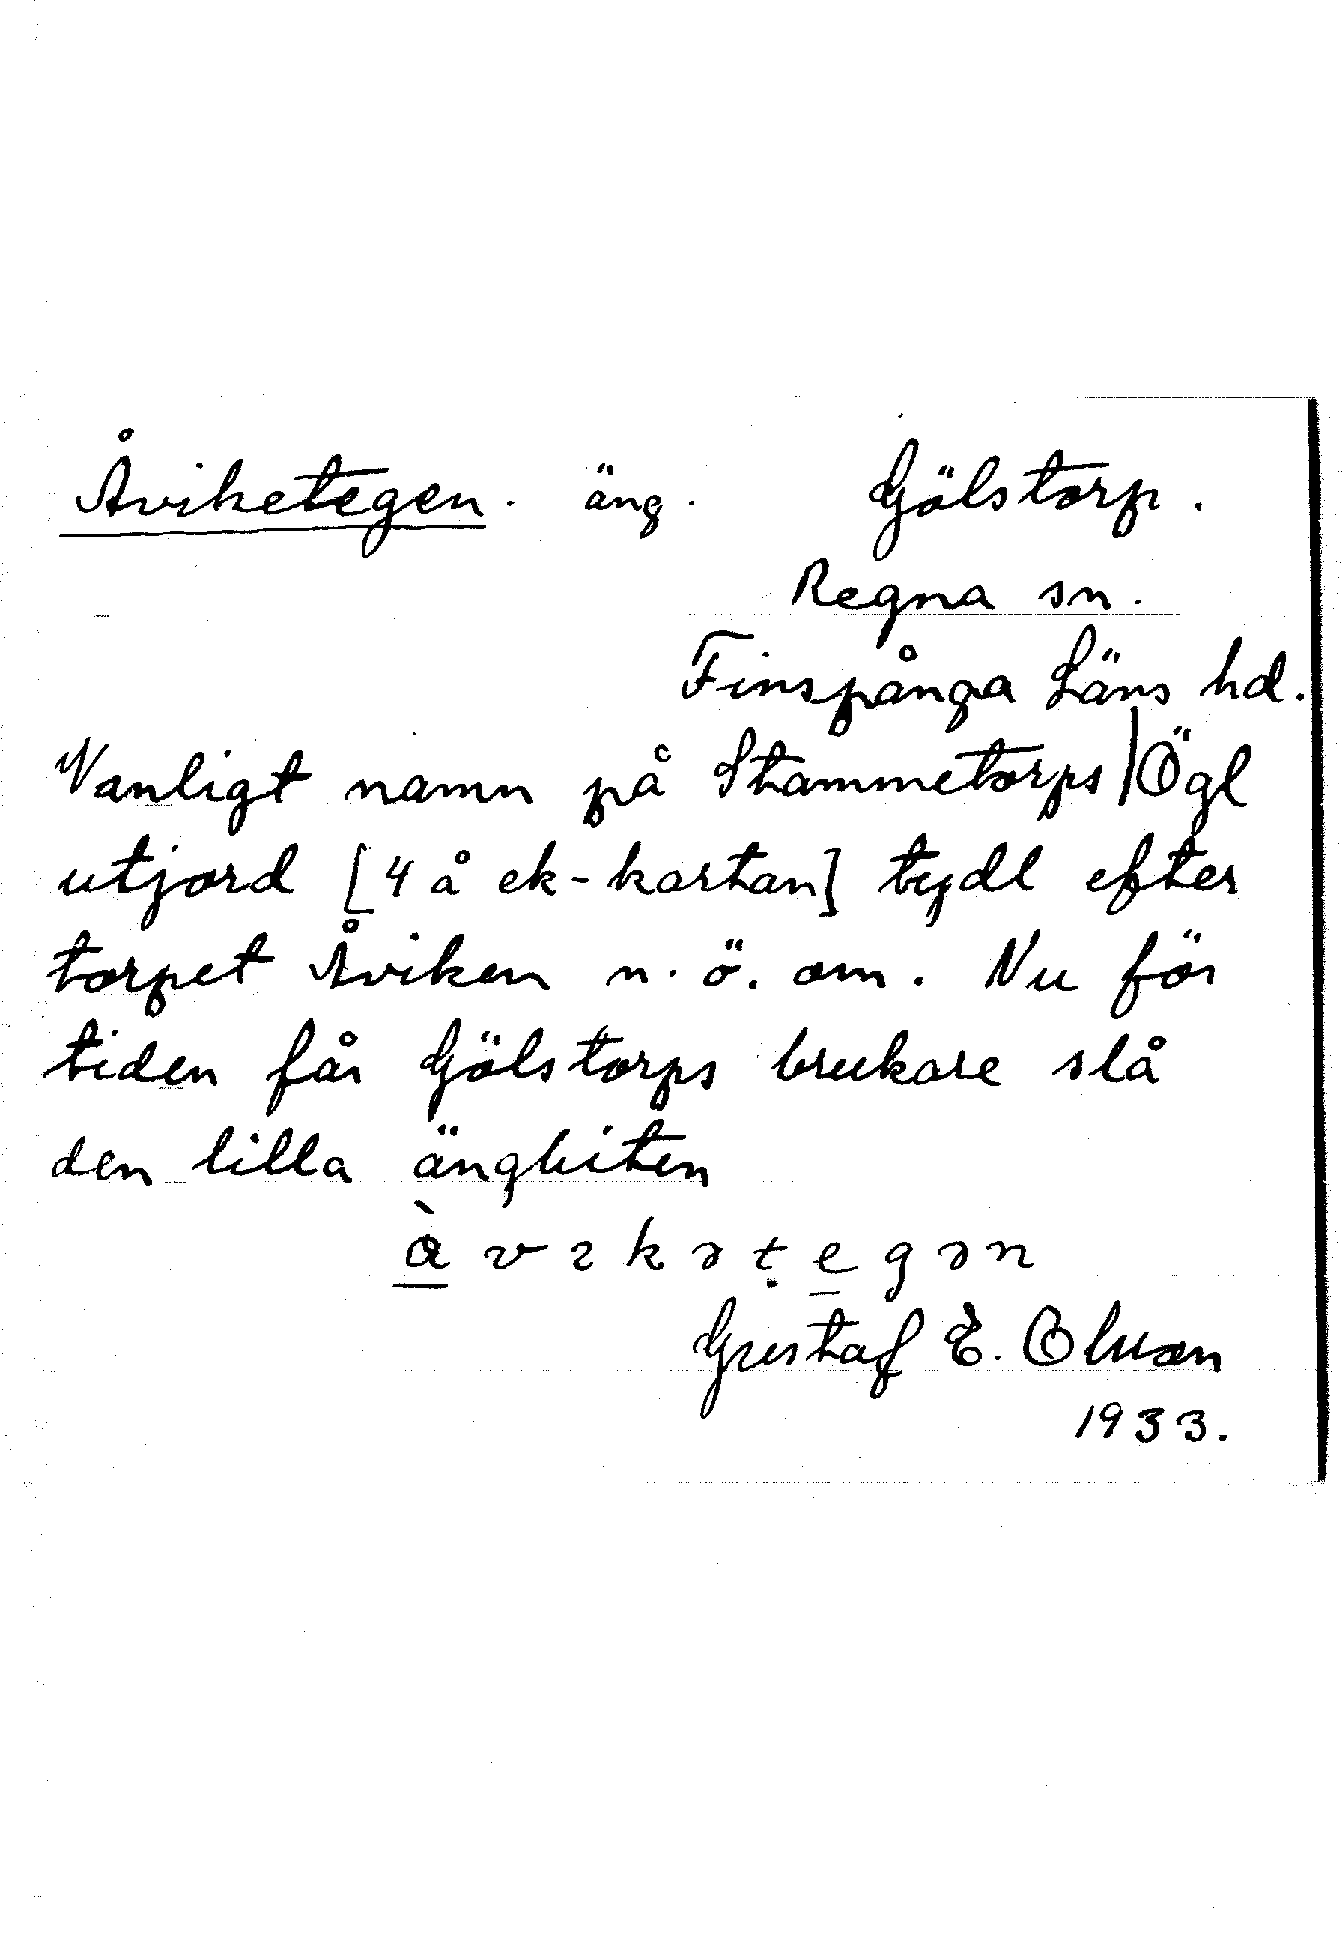 Åviketegen. äng. Gölstorp.
Regna sn.
Finspånga Läns hd.
Vanligt namn på Stammetorps | Ögl
utjord [4 å ek-kartan] tydl efter
torpet Åviken n.ö. om. Nu för
tiden får Gölstorps brukare slå
den lilla ängbiten
Gustaf E. Olsson
1933.